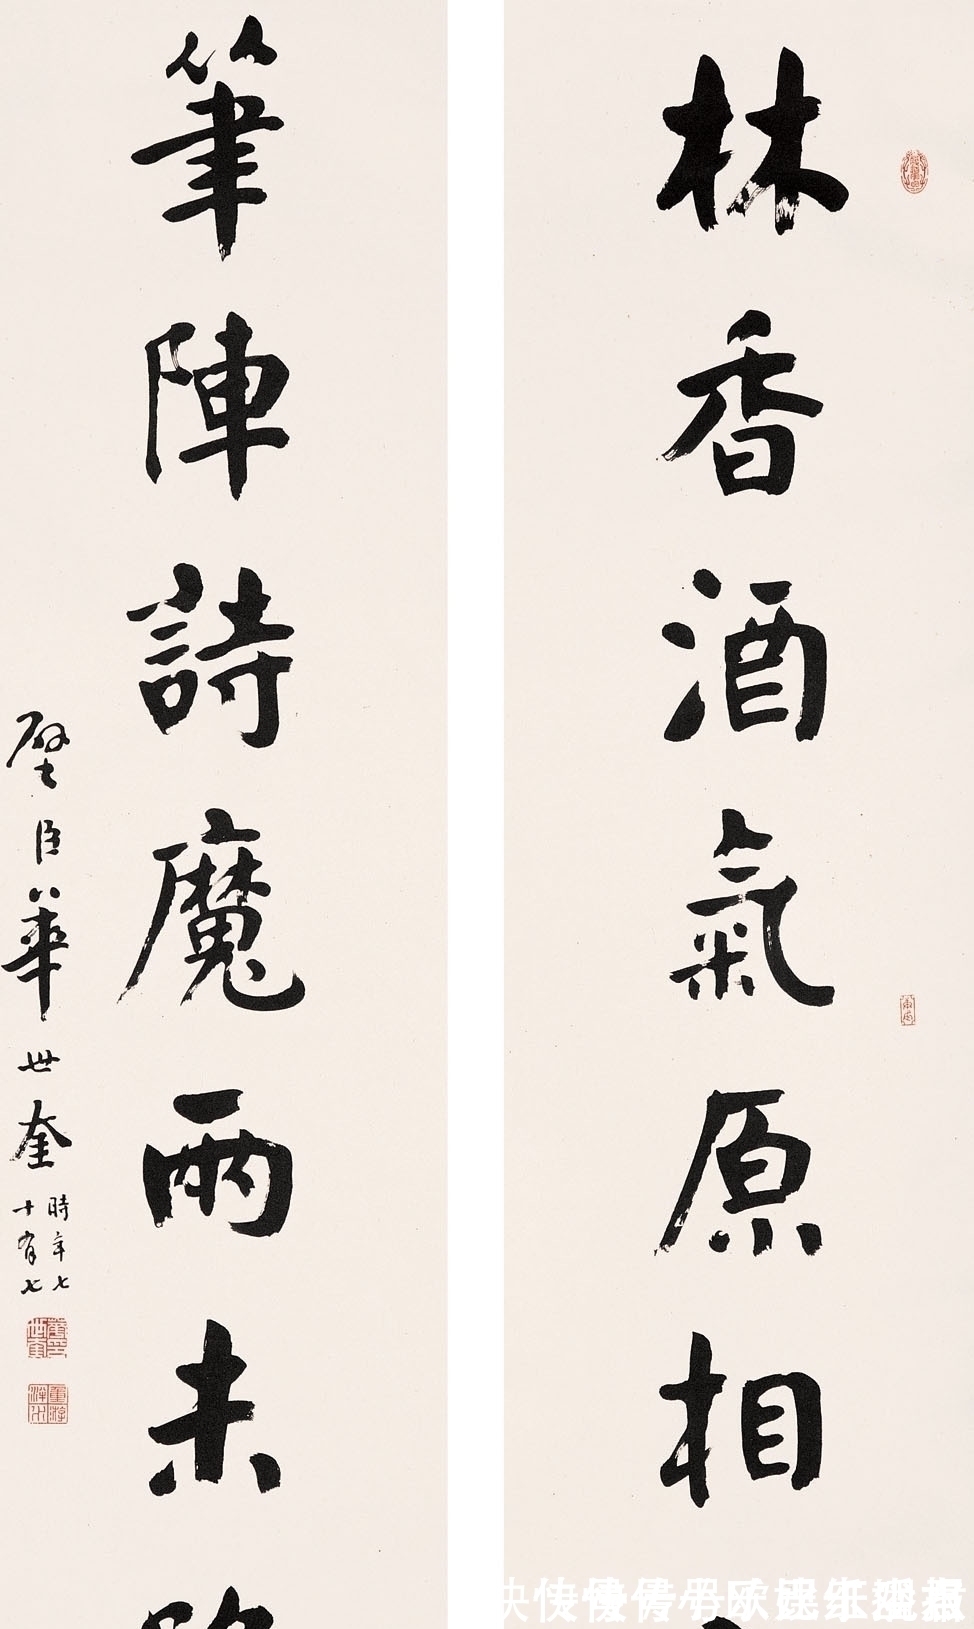 林香酒氣原相
筆陣詩魔兩未
璧臣華世奎
時年七
十有七